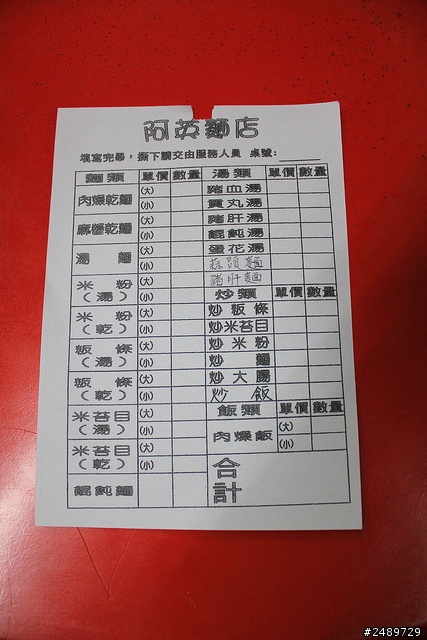 阿英麵店
填寫完畢，撕下請交由服務人員 桌號：
麵類 單價 數量 湯類 單價 數量
肉燥乾麵 (大) 豬血湯
(小) 貢丸湯
麻醬乾麵 (大) 豬肝湯
(小) 餛飩湯
湯麵 (大) 蛋花湯
(小) 蒜頭麵
米粉（湯） (大) 豬肝麵
(小) 炒類 單價 數量
米粉（乾） (大) 炒粄條
(小) 炒米苔目
粄條（湯） (大) 炒米粉
(小) 炒麵
粄條（乾） (大) 炒大腸
(小) 炒飯
米苔目（湯） (大) 飯類 單價 數量
(小) 肉燥飯 (大)
米苔目（乾） (大) (小)
(小) 合計
餛飩麵
#2489729